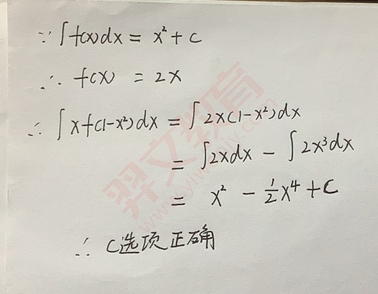 ∵ ∫f(x)dx = x² + C
∴ f(x) = 2x
∴ ∫xf(1-x²)dx = ∫2x(1-x²)dx
= ∫2xdx - ∫2x³dx
= x² - 1/2 x⁴ + C
∴ C选项正确
羿文教育